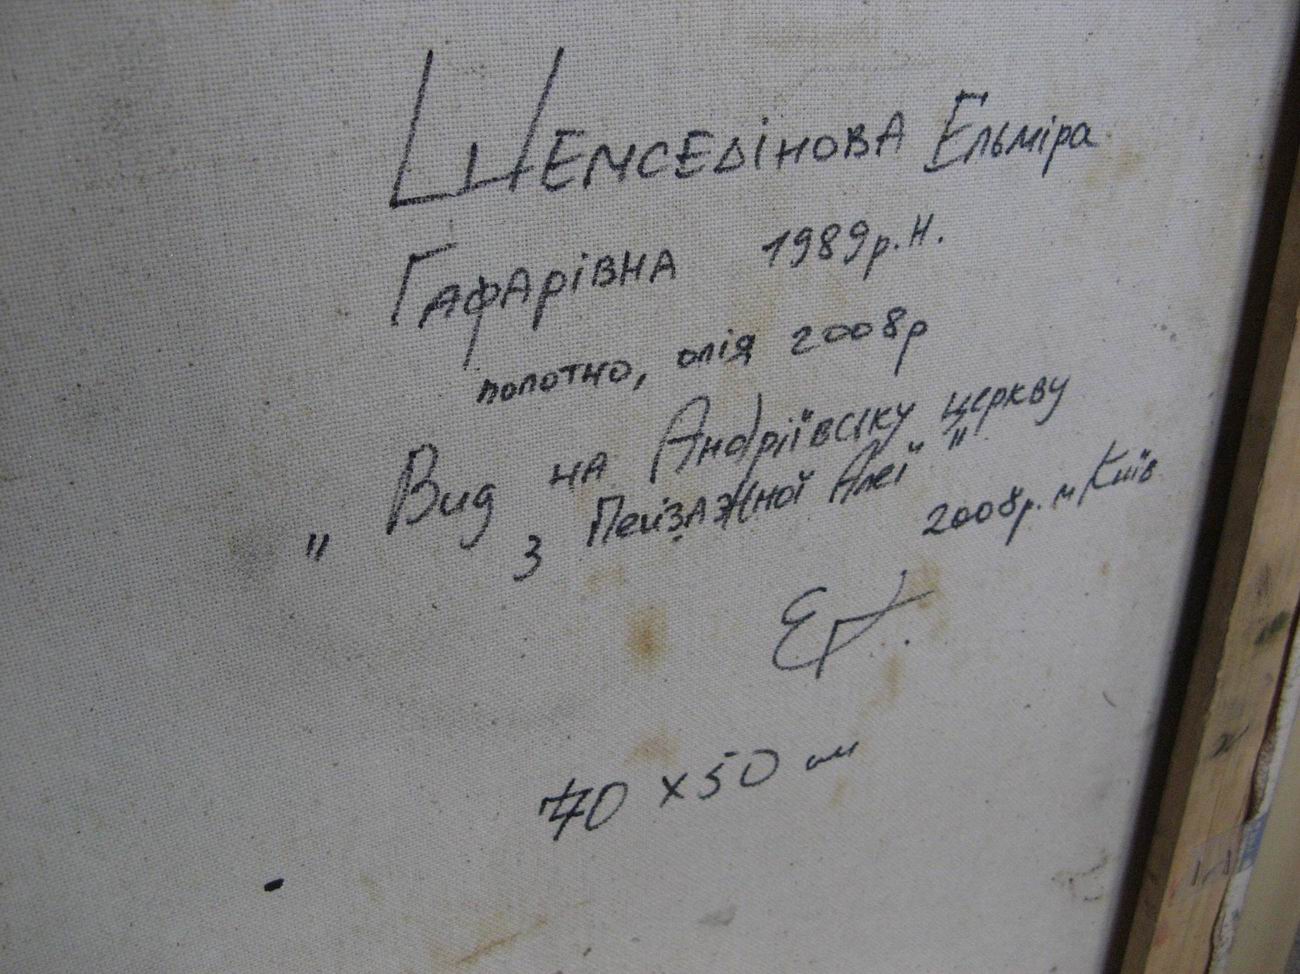 Шемседінова Ельміра
Гафарівна 1989р.н.
полотно, олія 2008р
"Вид на Андріївську церкву
з Пейзажної Алеї"
2008р. м Київ
70 x 50 см